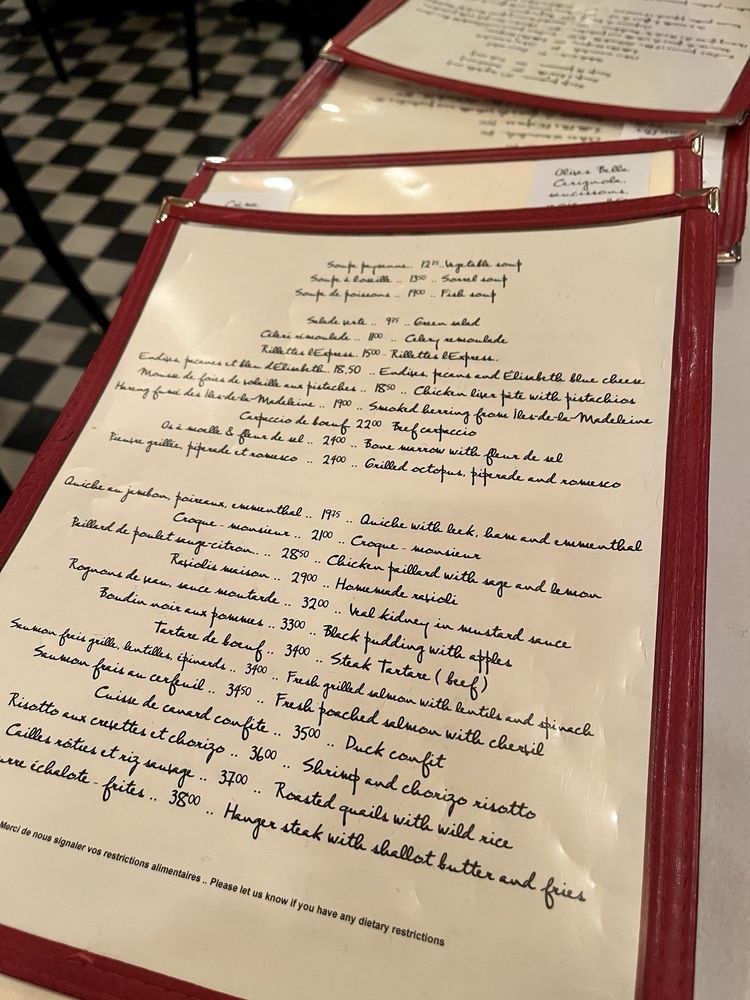 Olives Bella
Cerignola,
saucissons,
Soupe paysanne.. 12 75.. Vegetable soup
Soupe à l'oseille .. 13 50 .. Sorrel soup
Soupe de poissons .. 19 00 .. Fish soup
Salade verte .. 9 75 .. Green salad
Céleri rémoulade .. 11 00 .. Celery remoulade
Rillettes L'Express. 15 00 - Rillettes L'Express..
Endives, pacanes et bleu d'Elisabeth.. 18.50 .. Endives, pecans and Elisabeth blue cheese
Mousse de foies de volaille aux pistaches .. 18 50 .. Chicken liver pâte with pistachios
Hareng fumé des Îles-de-la-Madeleine .. 19 00 .. Smoked herring from Îles-de-la-Madeleine
Carpaccio de bœuf 22 00 Beef carpaccio
Os à moelle & fleur de sel .. 24 00 .. Bone marrow with fleur de sel
Pieuvre grillée, piperade et romesco .. 24 00 .. Grilled octopus, piperade and romesco
Quiche au jambon, poireaux, emmenthal .. 19 75 .. Quiche with leek, ham and emmenthal
Croque - monsieur .. 21 00 .. Croque - monsieur
Paillard de poulet sauge-citron... .. 28 50 .. Chicken paillard with sage and lemon
Raviolis maison .. 29 00 .. Homemade ravioli
Rognons de veau, sauce moutarde .. 32 00 .. Veal kidney in mustard sauce
Boudin noir aux pommes .. 33 00 .. Black pudding with apples
Tartare de bœuf .. 34 00 .. Steak Tartare ( beef)
Saumon frais grille, lentilles, épinards .. 34 00 .. Fresh grilled salmon with lentils and spinach
Saumon frais au cerfeuil .. 34 50 .. Fresh poached salmon with chervil
Cuisse de canard confite .. 35 00 .. Duck confit
Risotto aux crevettes et chorizo .. 36 00 .. Shrimp and chorizo risotto
Cailles rôties et riz sauvage .. 37 00 .. Roasted quails with wild rice
échalote - frites .. 38 00 .. Hanger steak with shallot butter and fries
Merci de nous signaler vos restrictions alimentaires .. Please let us know if you have any dietary restrictions